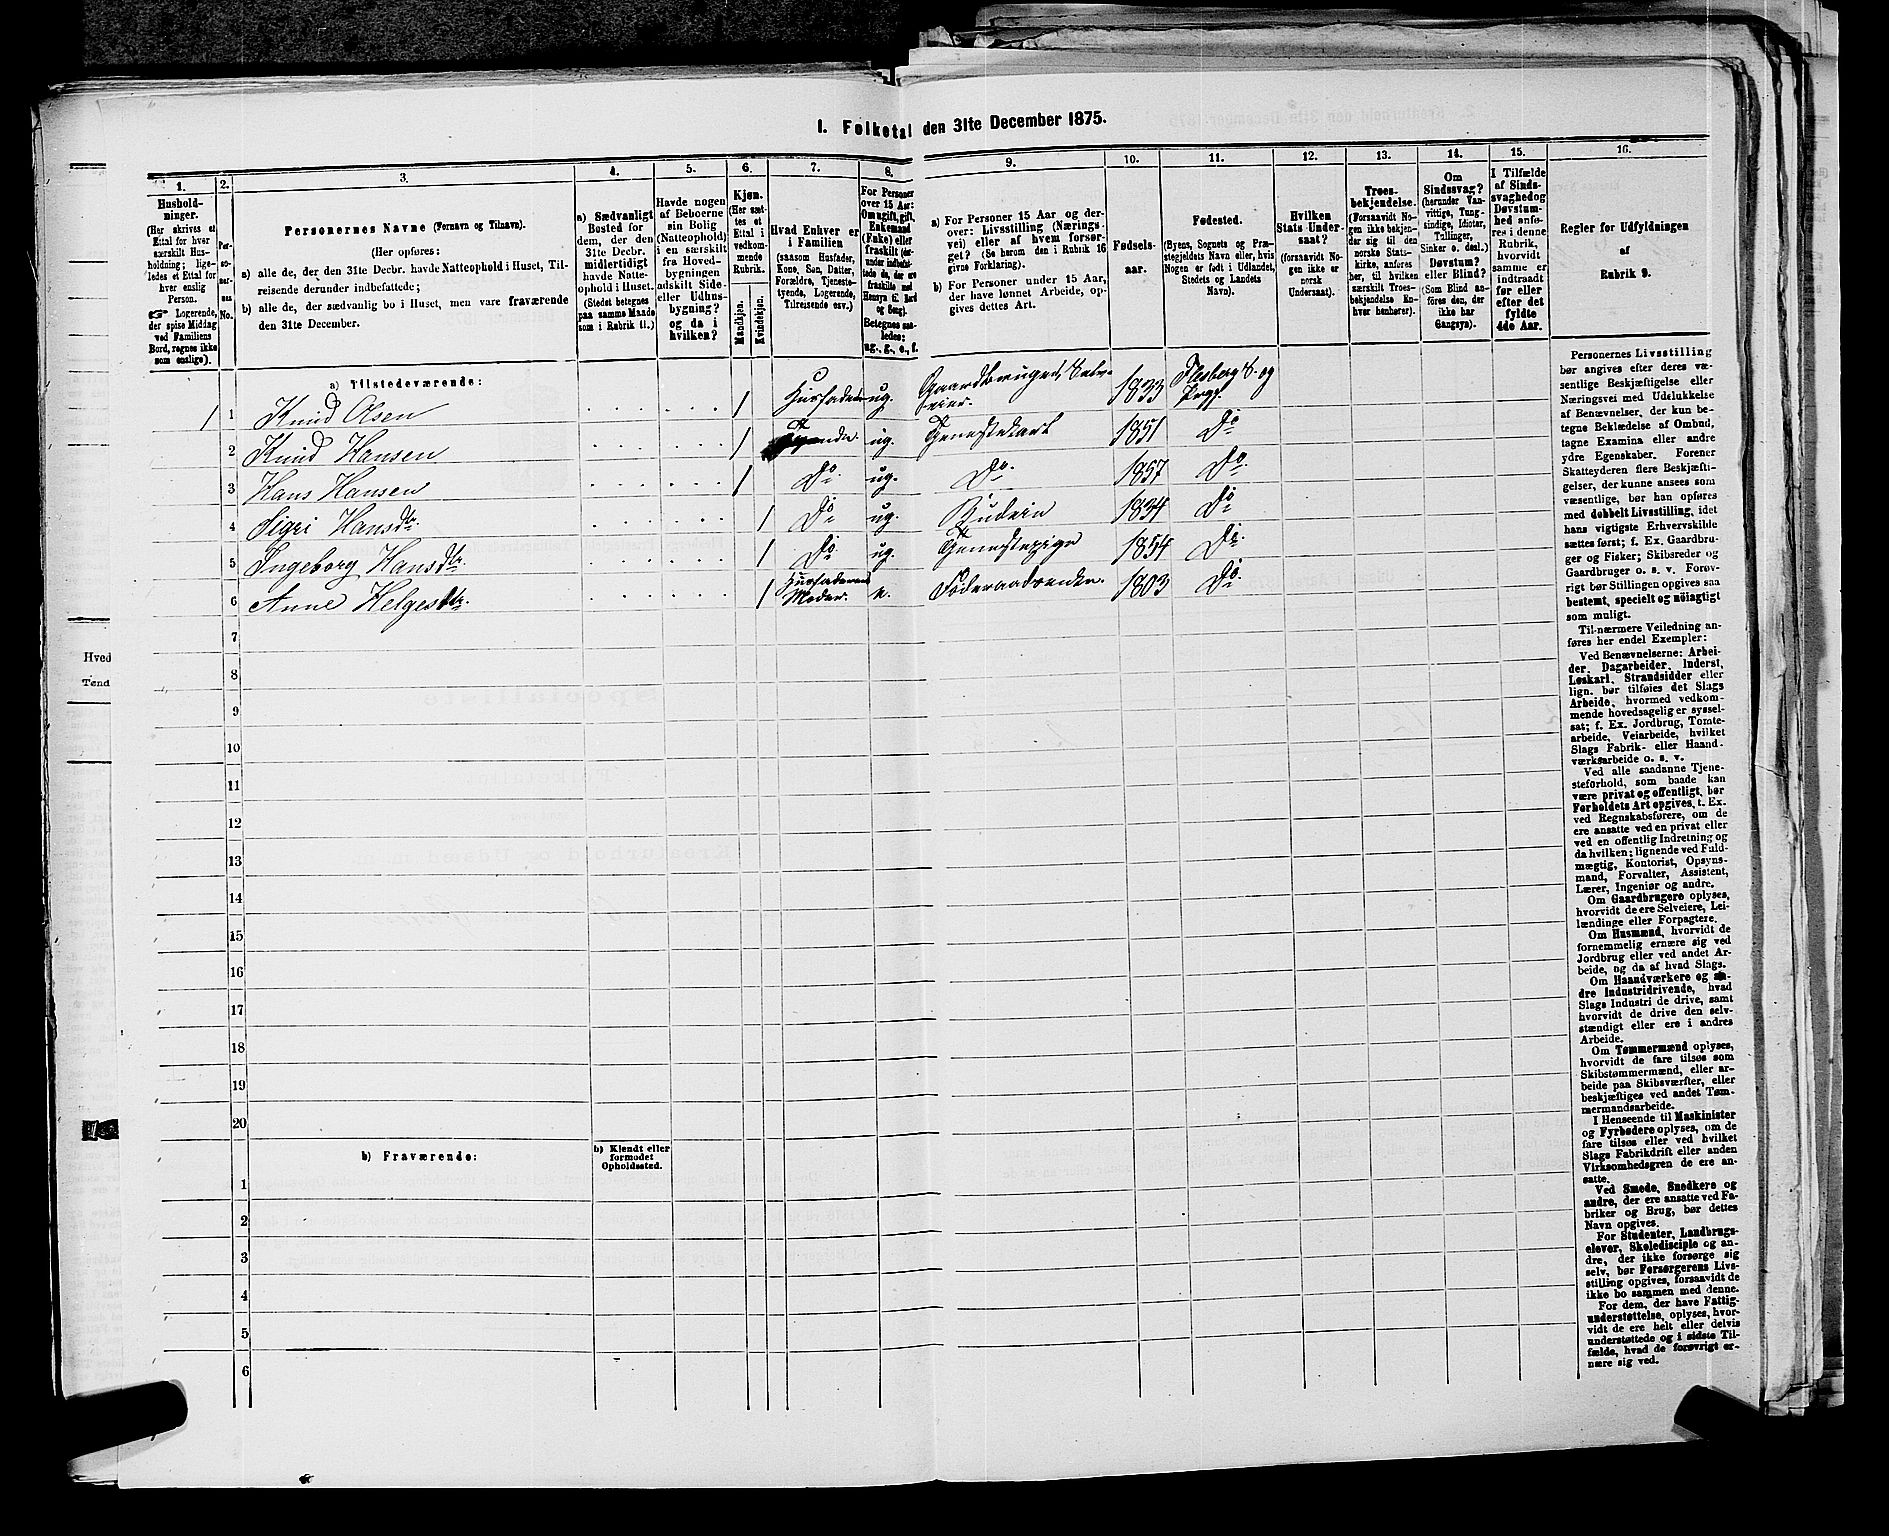 I. Folketal den 31te December 1875.
1.
2.
3.
4.
5.
6.
7.
8.
9.
10.
11.
12.
13.
14.
15.
16.
Hushold-
ninger.
(Her skrives et
Ettal for hver
særskilt Hus-
holdning; lige-
ledes et Ettal for
hver enslig
Person.
☞ Logerende,
der spise Middag
ved Familiens
Bord, regnes ikke
som enslige).
Per-
so-
ner-
nes
No.
Personernes Navne (Fornavn og Tilnavn).
(Her opføres:
a) alle de, der den 31te Decbr. havde Natteophold i Huset, Til-
reisende derunder indbefattede;
b) alle de, der sædvanlig bo i Huset, men vare fraværende
den 31te December.
a) Sædvanligt
Bosted for
dem, der den
31te Decbr.
midlertidigt
havde Natte-
ophold i Huset.
(Stedet betegnes
paa samme Maade
som i Rubrik 11.)
Havde nogen
af Beboerne
sin Bolig
(Natteophold)
i en særskilt
fra Hoved-
bygningen
adskilt Side-
eller Udhus-
bygning?
og da i
hvilken?
Kjøn.
(Her sæt-
tes et
Ettal i
vedkom-
mende
Rubrik.
Mandkjøn.
Kvindekjøn.
Hvad Enhver er
i Familien
(saasom Husfader,
Kone, Søn, Datter,
Forældre, Tjeneste-
tyende, Logerende,
Tilreisende osv.)
For Personer
over 15 Aar:
Om ugift, gift,
Enkemand
(Enke) eller
fraskilt (der-
under indbefat-
tede de, der ere
fraskilte med
Hensyn til Bord
og Seng).
Betegnes saa-
ledes:
ug., g., e., f.
a) For Personer 15 Aar og der-
over: Livsstilling (Nærings-
vei) eller af hvem forsør-
get. (Se herom den i Rubrik 16
givne Forklaring).
b) For Personer under 15 Aar,
der have lønnet Arbeide, op-
gives dettes Art.
Fødsels-
aar.
Fødested.
(Byens, Sognets og Præ-
stegjeldets Navn eller, hvis
Nogen er født i Udlandet,
Stedets og Landets
Navn).
Hvilken
Stats Under-
saat?
(forsaavidt No-
gen ikke er
norsk
Undersaat).
Troes-
bekjendelse.
(Forsaavidt No-
gen ikke bekjen-
der sig til den
norske Stats-
kirke, anføres
her, til hvilken
særskilt Troes-
bekjendelse En-
hver henhører).
Om
Sindssvag?
(herunder Van-
vittige, Tung-
sindige, Idioter,
Tullinger,
Sinker o. desl.)
Døvstum?
eller Blind?
(Som Blind an-
føres den, der
ikke har
Gangsyn).
I Tilfælde
af Sinds-
svaghed og
Døvstum-
hed anfø-
res i denne
Rubrik,
hvorvidt
samme er
indtraadt
før eller
efter det
fyldte
4de Aar.
Regler for Udfyldningen
af
Rubrik 9.
a) Tilstedeværende:
1 1 Knud Olsen 1 Husfader ug. Gaardbruger, Selv-
eier. 1833 Flesberg S. og
Prgj.
2 Knud Hansen 1 ug. Tjenestekarl 1851 Do
3 Hans Hansen 1 Do. ug. Do. 1857 Do.
4 Sigri Hansdtr. 1 Do ug. Budeie 1834 Do
5 Ingeborg Hansdtr. 1 Do. ug. Tjenestepige 1854 Do.
6 Anne Helgesdtr. 1 Husfaderens
Moder. e. Føderaadsenke. 1803 Do.
7
8
9
10
11
12
13
14
15
16
17
18
19
20
b) Fraværende:
b) Kjendt eller
formodet
Opholdssted.
1
2
3
4
5
6
Personernes Livsstilling
bør angives efter deres væ-
sentlige Beskjæftigelse eller
Næringsvei med Udelukkelse
af Benævnelser, der kun be-
tegne Beklædelse af Ombud,
tagne Examina eller andre
ydre Egenskaber. Forener
Skatteyderen flere Beskjæfti-
gelser, der kunne ansees som
væsentlige, bør han opføres
med dobbelt Livsstilling, idet
hans vigtigste Erhvervskilde
sættes først; f. Ex. Gaardbru-
ger og Fisker; Skibsreder og
Gaardbruger o. s. v. Forøv-
rigt bør Stillingen opgives saa
bestemt, specielt og nöiagtigt
som muligt.
Til nærmere Veiledning an-
føres her endel Exempler:
Ved Benævnelserne: Arbei-
der, Dagarbeider, Inderst,
Løskarl, Strandsidder eller
lign. bør tilføies det Slags
Arbeide, hvormed vedkom-
mende hovedsagelig er syssel-
sat; f. Ex. Jordbrug, Tomte-
arbeide, Veiarbeide, hvilket
Slags Fabrik- eller Haand-
værksarbeide o. s. v.
Ved alle saadanne Tjene-
steforhold, som baade kan
være privat og offentligt, bør
Forholdets Art opgives, t. Ex.
ved Regnskabsførere, om de
ere ansatte ved en privat eller
ved en offentlig Indretning og
da hvilken; lignende ved Fuld-
mægtig, Kontorist, Opsyns-
mand, Forvalter, Assistent,
Lærer, Ingeniør og andre.
Om Gaardbrugere oplyses,
hvorvidt de ere Selveiere, Lei-
lændinge eller Forpagtere.
Om Husmænd, hvorvidt de
fornemmelig ernære sig ved
Jordbrug eller ved andet Ar-
beide, og da af hvad Slags.
Om Haandværkere og an-
dre Industridrivende, hvad
Slags Industri de drive, samt
hvorvidt de drive den selv-
stændigt eller ere i andres
Arbeide.
Om Tømmermænd oplyses,
hvorvidt de fare tilsøs som
Skibstømmermænd, eller ar-
beide paa Skibsværfter, eller
beskjæftiges ved andet Tøm-
mermandsarbeide.
I Henseende til Maskinister
og Fyrbødere oplyses, om de
fare tilsøs eller ved hvilket
Slags Fabrikdrift eller anden
Virksomhedsgren de ere an-
satte.
Ved Smede, Snedkere og
andre, der ere ansatte ved Fa-
briker og Brug, bør dettes
Navn opgives.
For Studenter, Landbrugs-
elever, Skoledisciple og an-
dre, der ikke forsørge sig
selv, bør Forsørgerens Livs-
stilling opgives, forsaavidt de
ikke bo sammen med denne.
For dem, der have Fattig-
understøttelse, oplyses, hvor-
vidt de ere helt eller delvis
understøttede og i sidste Til-
fælde, hvad de forøvrigt er-
nære sig ved.
Hved
Tønd